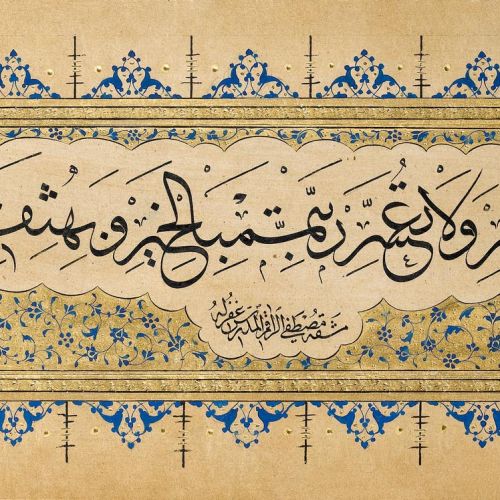 ر ولا تعسر رب تمم بالخير وبه ثقـ
مشقه مصطفى الراقم المدرس غفرله